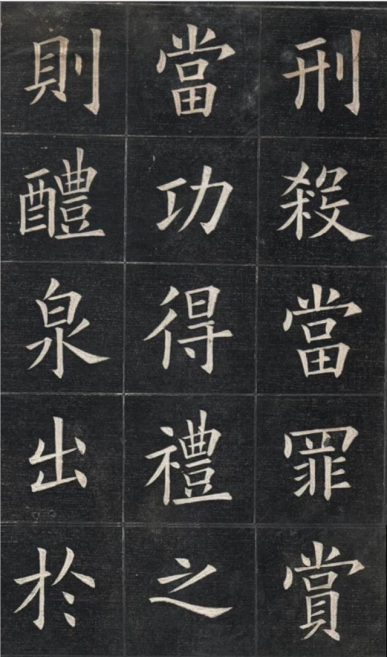 刑殺當罪賞
當功得禮之
則醴泉出於